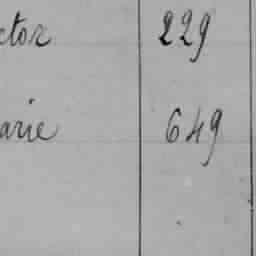 ctor 229
arie 649